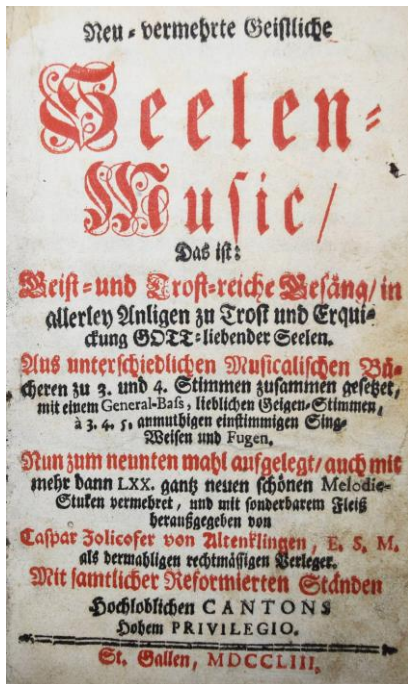 Neu-vermehrte Geistliche
Seelen-
Music/
Das ist:
Geist- und Trost-reiche Gesäng/ in
allerley Anligen zu Trost und Erqui-
ckung GOTT-liebender Seelen.
Aus unterschiedlichen Musicalischen Bü-
cheren zu 3. und 4. Stimmen zusammen gesetzet,
mit einem General-Bass, lieblichen Geigen-Stimmen,
à 3. 4. 5. anmuthigen einstimmigen Sing-
Weisen und Fugen.
Nun zum neunten mahl aufgelegt/ auch mit
mehr dann LXX. gantz neuen schönen Melodie-
Stuken vermehret, und mit sonderbarem Fleiß
heraußgegeben von
Caspar Zolicofer von Altenklingen, E. S. M.
als dermahligen rechtmässigen Verleger.
Mit samtlicher Reformierten Ständen
Hochloblichen CANTONS
Hohem PRIVILEGIO.
St. Gallen, MDCCLIII.